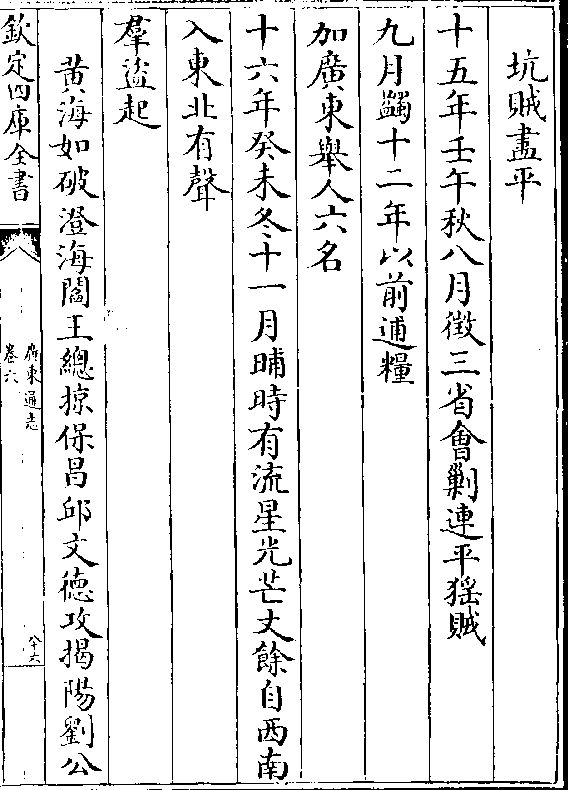 坑賊盡平
十五年壬午秋八月徴三省會剿連平猺賊
九月蠲十二年以前逋糧
加廣東舉人六名
十六年癸未冬十一月晡時有流星光芒丈餘自西南
入東北有聲
羣盜起
黄海如破澄海閻王總掠保昌邱文徳攻揭陽劉公
欽定四庫全書
廣東通志
卷六
八十六